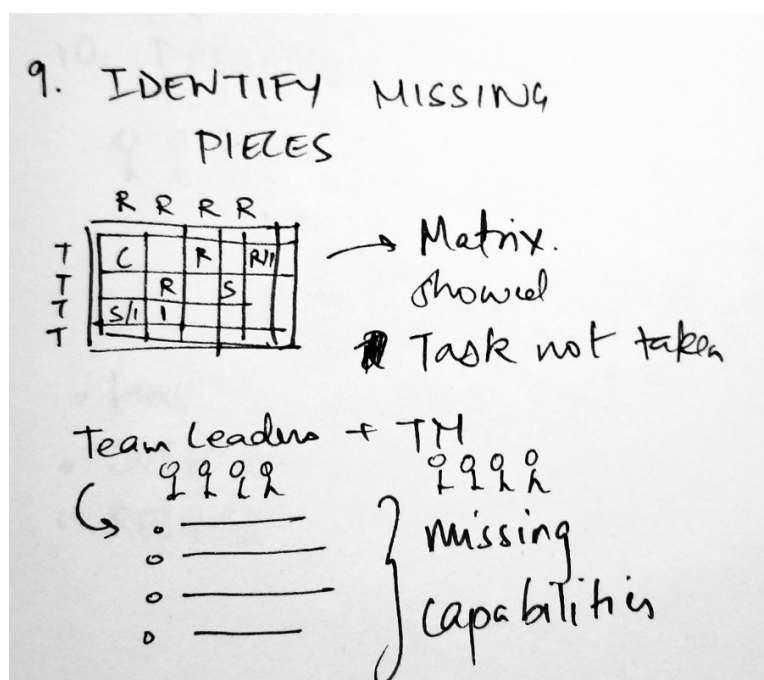 9. IDENTIFY MISSING
PIECES
R R R R
T C R R/I
T R S
T S/I I
T
Matrix.
showed
Task not taken
Team Leaders + TM
missing
capabilities